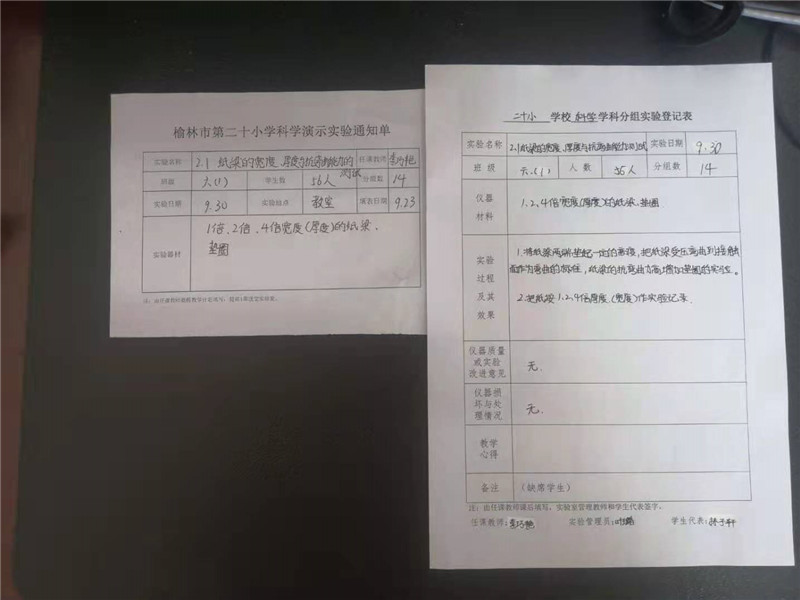 榆林市第二十小学科学演示实验通知单
实验名称 2.1 纸梁的宽度、厚度与抗弯曲能力的测试 任课教师 李巧艳
班级 六(1) 学生数 56人 分组数 14
实验日期 9.30 实验地点 教室 填表日期 9.23
实验器材
1倍、2倍、4倍宽度(厚度)的纸梁、
垫圈
二十小 学校 科学 学科分组实验登记表
实验名称 2.1纸梁的宽度、厚度与抗弯曲能力的测试 实验日期 9.30
班 级 六(1) 人 数 56人 分组数 14
仪器
材料
1、2、4倍宽度(厚度)的纸梁、垫圈
实验
过程
及其
效果
1.将纸梁两端垫起一定的高度,把纸梁受压弯曲到接触
面作为弯曲的标准,纸梁的抗弯曲力高增加垫圈的实验。
2.把纸按1、2、4倍厚度、(宽度)作实验记录.
仪器质量
或实验
改进意见
无.
仪器损
坏与处
理情况
无.
教学
心得
备注 (缺席学生)
注:由任课教师课后填写,实验室管理教师和学生代表签字。
任课教师:李巧艳 实验管理员: 学生代表: